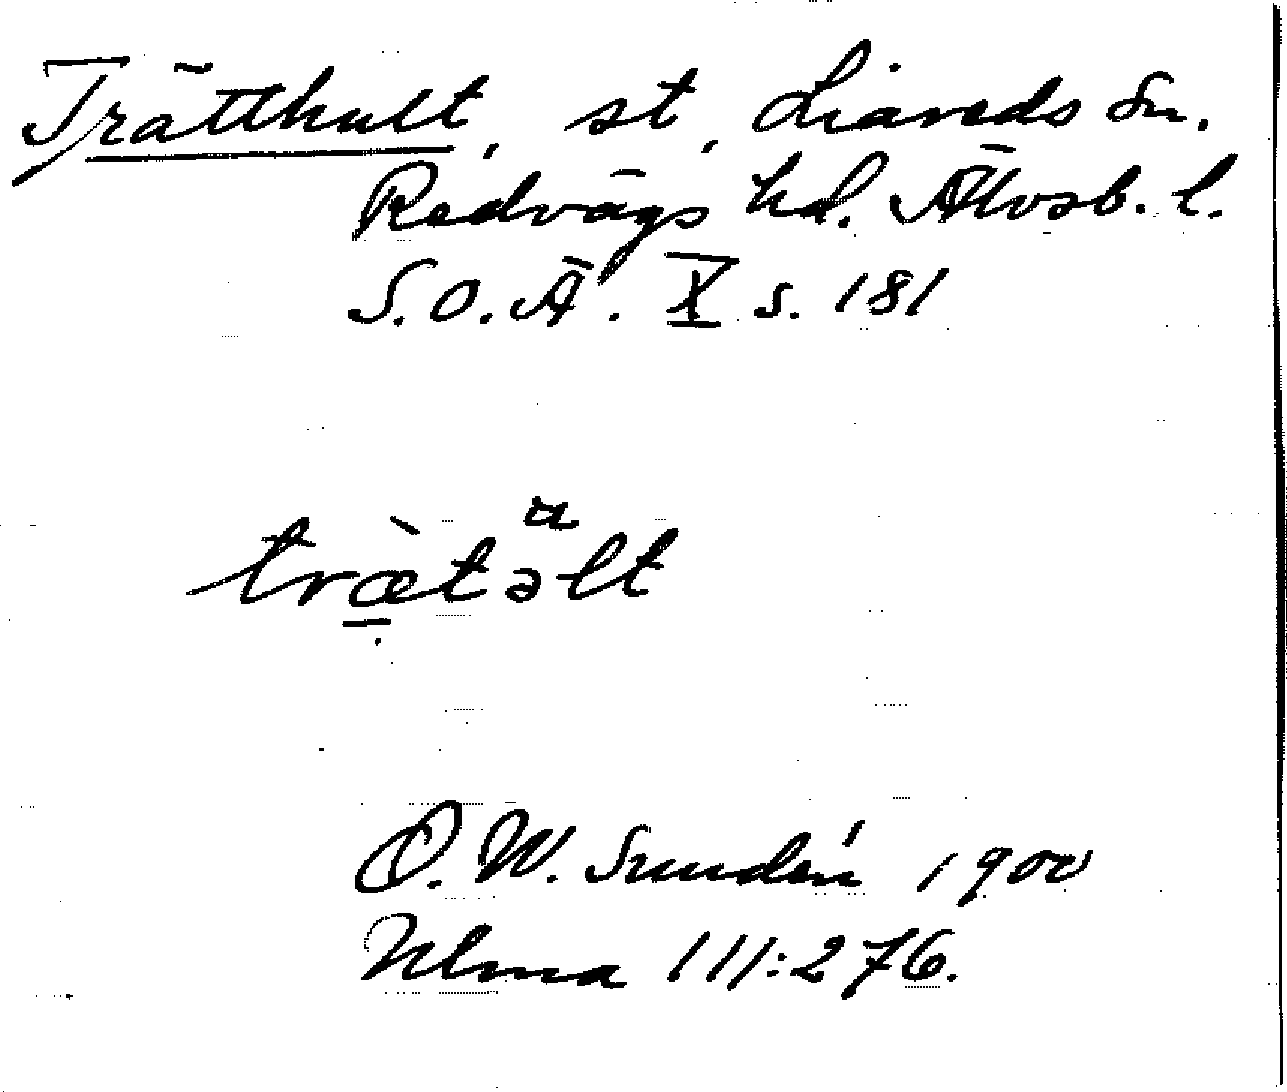 Trätthult, st, Liareds sn.
Redvägs hd. Älvsb. l.
S. O. Ä. X s. 181
a
træ̀təlt
O. W. Sundén 1900
Ulma 111:276.